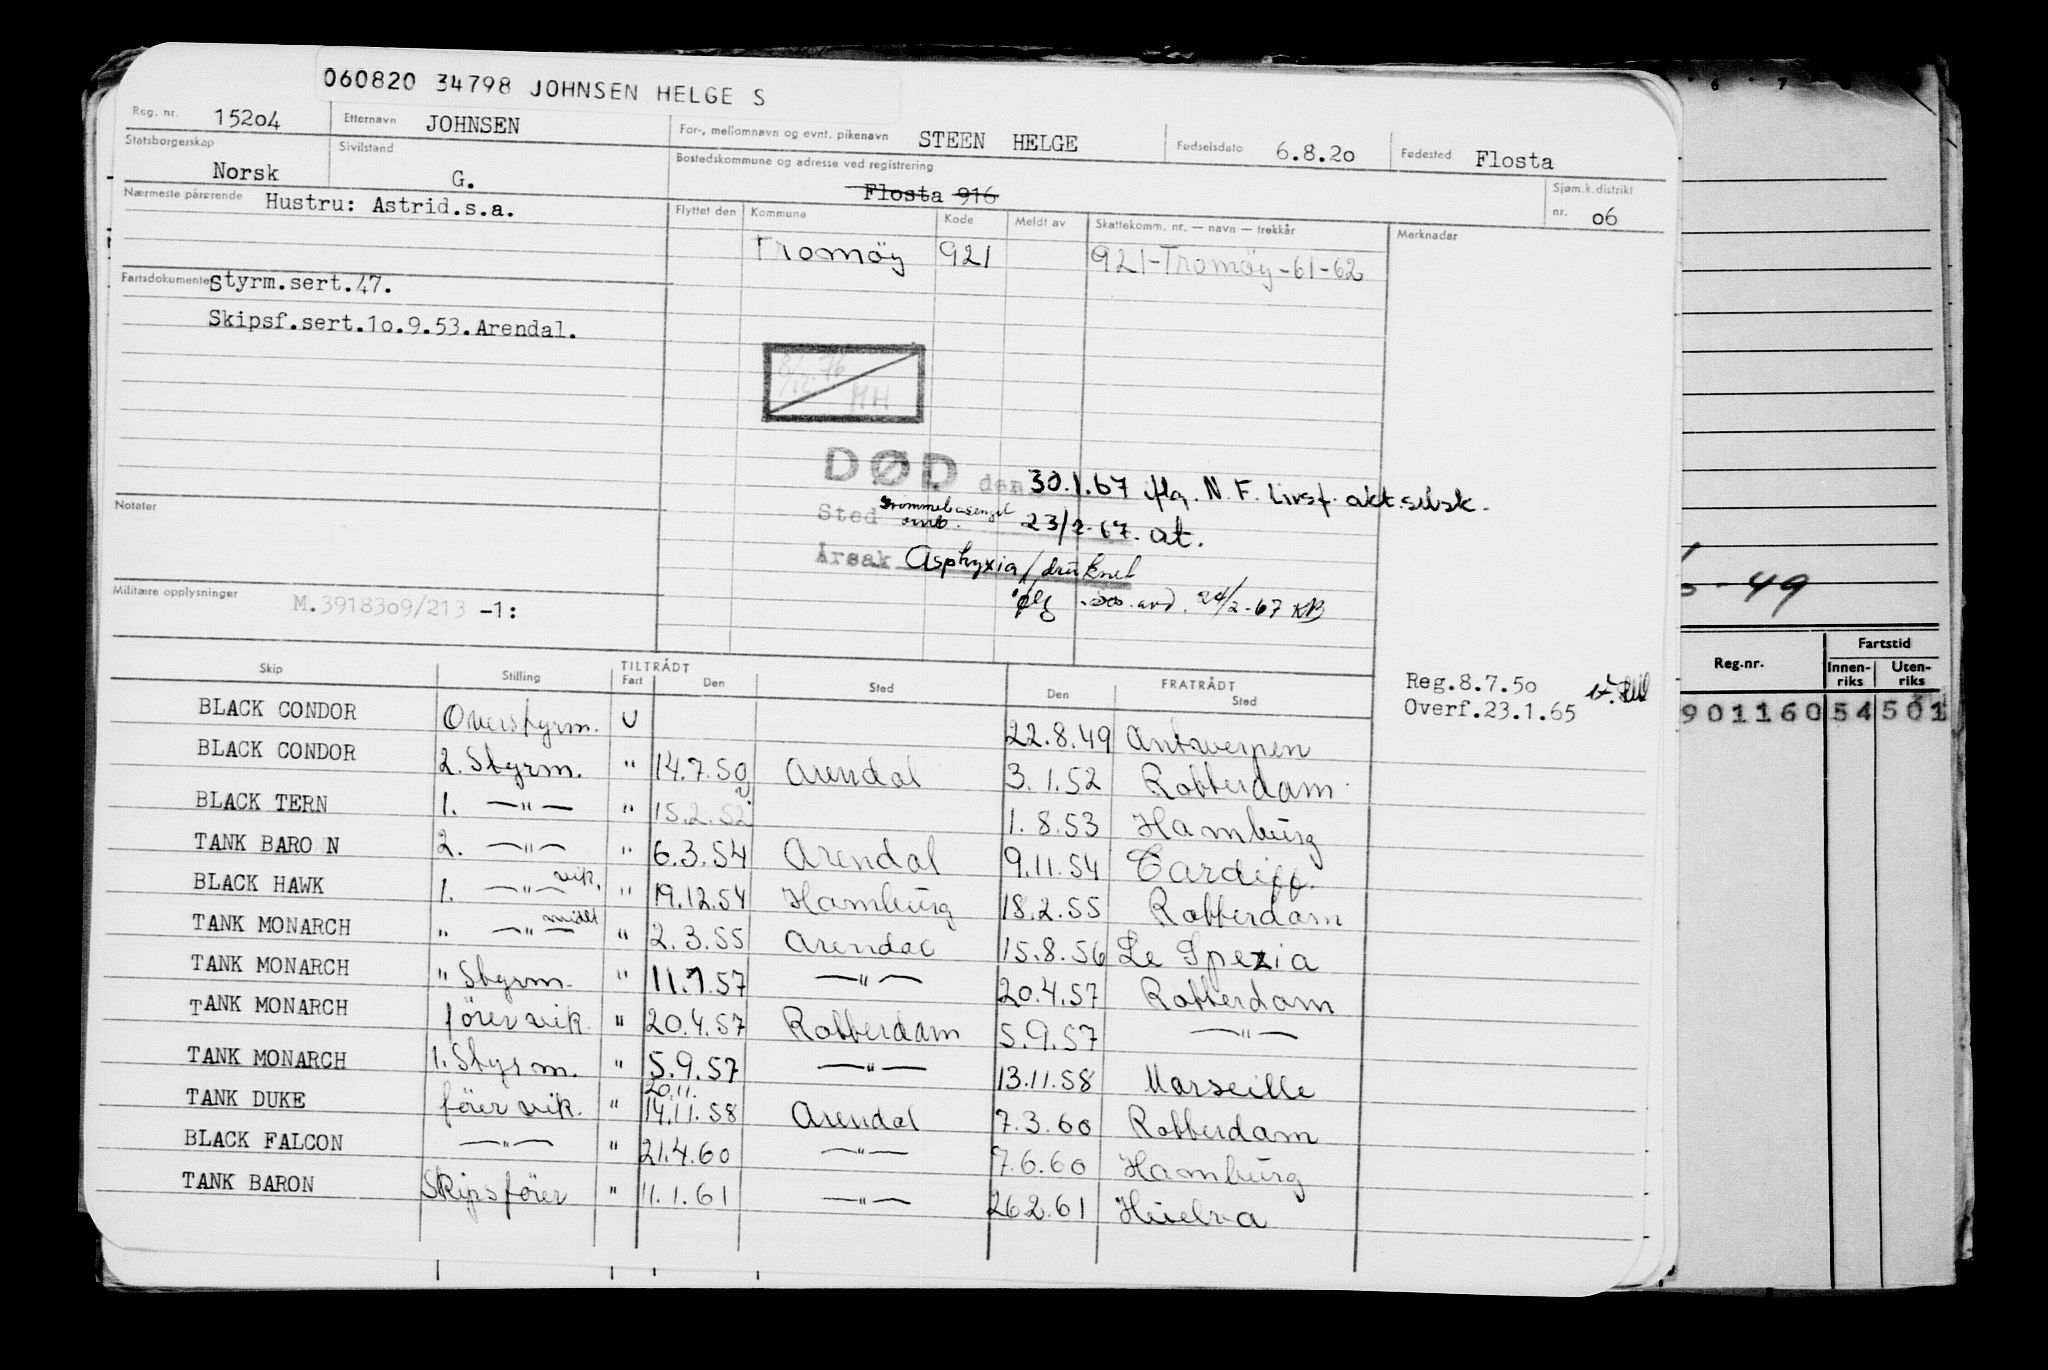 060820 34798 JOHNSEN HELGE S
Reg. nr. 15204 Etternavn JOHNSEN For-, mellomnavn og evnt. pikenavn STEEN HELGE Fødselsdato 6.8.20 Fødested Flosta
Statsborgerskap Norsk Sivilstand G. Bostedskommune og adresse ved registrering Flosta 916 Sjøm.k.distrikt nr. 06
Nærmeste pårørende Hustru: Astrid.s.a.
Flyttet den Kommune Kode Meldt av Skattekomm. nr. — navn — trekkår Merknader
Tromöy 921 921-Tromöy-61-62
Fartsdokumenter Styrm.sert.47.
Skipsf.sert.10.9.53.Arendal.
8/12.76
HH
DØD den 30.1.67 iflg. N.F. Livsf. akt.selsk.
Notater
Sted 23/2-67. at.
Årsak Asphyxia/druknet
Militære opplysninger M.3918309/213 -1:
24/2-67 KB
Skip Stilling TILTRÅDT Fart Den Sted FRATRÅDT Den Sted
Reg.8.7.50
Overf.23.1.65
BLACK CONDOR Overstyrm. U 22.8.49 Antwerpen
BLACK CONDOR 2. Styrm. " 14.7.50 Arendal 3.1.52 Rotterdam
BLACK TERN 1. —"— " 15.2.52 1.8.53 Hamburg
TANK BARON 2. —"— " 6.3.54 Arendal 9.11.54 Cardiff.
BLACK HAWK 1. —"— vik. " 19.12.54 Hamburg 18.2.55 Rotterdam
TANK MONARCH " —"— midlt " 2.3.55 Arendal 15.8.56 Le Spezia
TANK MONARCH " Styrm. " 11.1.57 —"— 20.4.57 Rotterdam
TANK MONARCH förer vik. " 20.4.57 Rotterdam 5.9.57 —"—
TANK MONARCH 1. Styrm. " 5.9.57 —"— 13.11.58 Marseille
TANK DUKE förer vik. " 20.11. 14.11.58 Arendal 7.3.60 Rotterdam
BLACK FALCON —"— " 21.4.60 —"— 7.6.60 Hamburg
TANK BARON Skipsförer " 11.1.61 —"— 26.2.61 Huelva
6 7 8
-49
Fartstid
Reg.nr. Innen-riks Uten-riks
901160 54 501